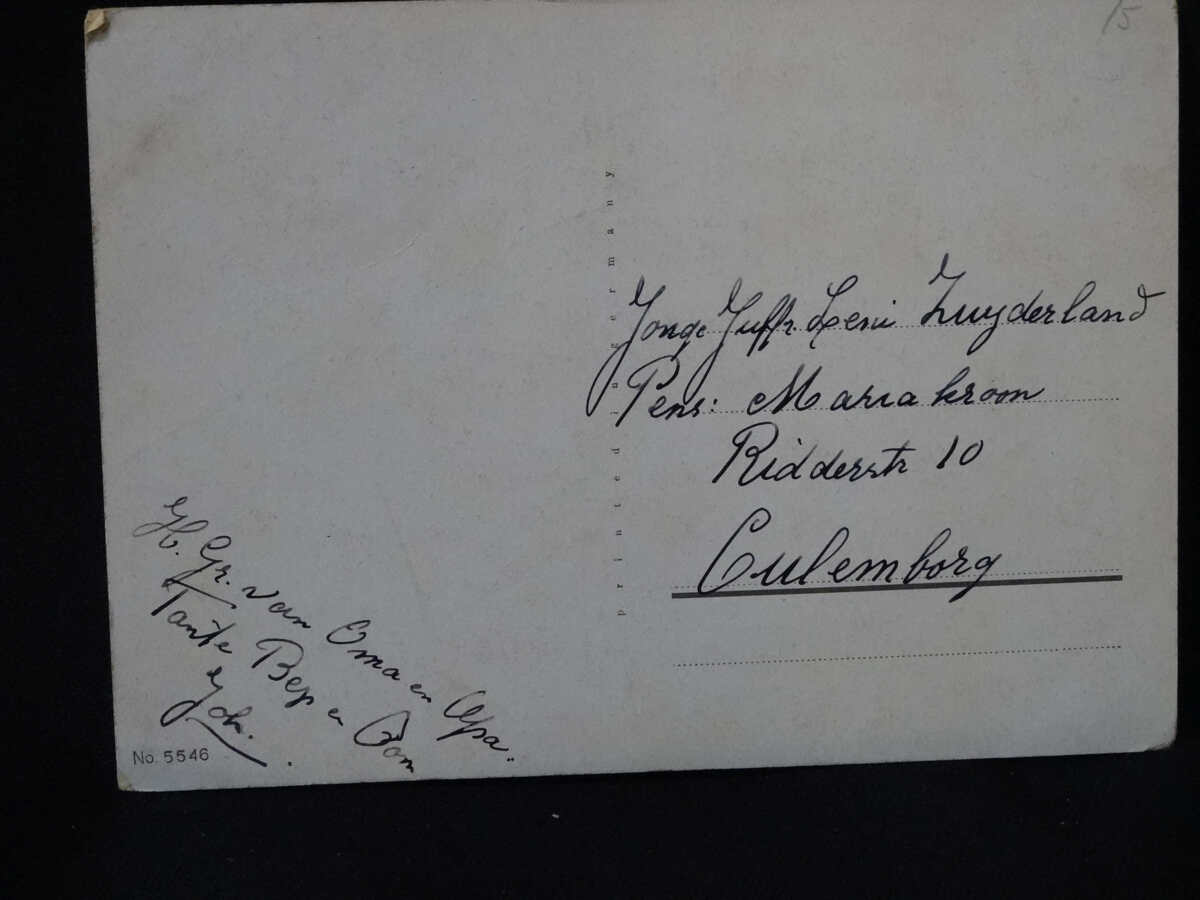 15
Jonge Juffr. Leni Zuyderland
Pens: Mariakroon
Ridderstr 10
Culemborg
H. Gr. van Oma en Opa.
Tante Bep en Oom
Joh.
No. 5546
printed in germany